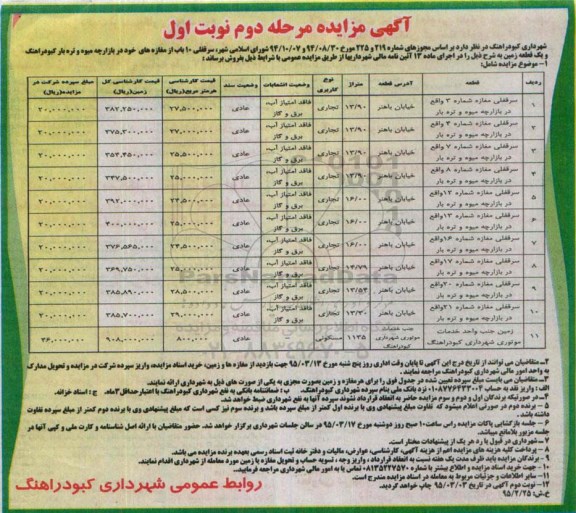 آگهی مزایده مرحله دوم نوبت اول
شهرداری کبودراهنگ در نظر دارد بر اساس مجوزهای شماره ۲۱۹ و ۲۲۵ مورخ ۹۴/۰۸/۳۰ و ۹۴/۱۰/۰۷ شورای اسلامی شهر، سرقفلی ۱۰ باب از مغازه های خود در بازارچه میوه و تره بار کبودراهنگ
و یک قطعه زمین به شرح ذیل را در اجرای ماده ۱۳ آئین نامه مالی شهرداریها از طریق مزایده عمومی با شرایط ذیل بفروش برساند:
۱- موضوع مزایده شامل:
ردیف قطعه آدرس قطعه متراژ نوع کاربری وضعیت انشعابات وضعیت سند قیمت کارشناسی هرمتر مربع(ریال) قیمت کارشناسی کل زمین(ریال) مبلغ سپرده شرکت در مزایده(ریال)
۱ سرقفلی مغازه شماره ۳ واقع در بازارچه میوه و تره بار خیابان باهنر ۱۳/۹۰ تجاری فاقد امتیاز آب، برق و گاز عادی ۲۷,۵۰۰,۰۰۰ ۳۸۲,۲۵۰,۰۰۰ ۲۰,۰۰۰,۰۰۰
۲ سرقفلی مغازه شماره ۴ واقع در بازارچه میوه و تره بار خیابان باهنر ۱۳/۹۰ تجاری فاقد امتیاز آب، برق و گاز عادی ۲۷,۰۰۰,۰۰۰ ۳۷۵,۳۰۰,۰۰۰ ۲۰,۰۰۰,۰۰۰
۳ سرقفلی مغازه شماره ۷ واقع در بازارچه میوه و تره بار خیابان باهنر ۱۳/۹۰ تجاری فاقد امتیاز آب، برق و گاز عادی ۲۵,۵۰۰,۰۰۰ ۳۵۴,۴۵۰,۰۰۰ ۲۰,۰۰۰,۰۰۰
۴ سرقفلی مغازه شماره ۸ واقع در بازارچه میوه و تره بار خیابان باهنر ۱۳/۹۰ تجاری فاقد امتیاز آب، برق و گاز عادی ۲۵,۰۰۰,۰۰۰ ۳۴۷,۵۰۰,۰۰۰ ۲۰,۰۰۰,۰۰۰
۵ سرقفلی مغازه شماره ۱۲ واقع در بازارچه میوه و تره بار خیابان باهنر ۱۶/۰۰ تجاری فاقد امتیاز آب، برق و گاز عادی ۲۴,۵۰۰,۰۰۰ ۳۹۲,۰۰۰,۰۰۰ ۲۰,۰۰۰,۰۰۰
۶ سرقفلی مغازه شماره ۱۳ واقع در بازارچه میوه و تره بار خیابان باهنر ۱۶/۰۰ تجاری فاقد امتیاز آب، برق و گاز عادی ۲۵,۰۰۰,۰۰۰ ۴۰۰,۰۰۰,۰۰۰ ۲۰,۰۰۰,۰۰۰
۷ سرقفلی مغازه شماره ۱۶ واقع در بازارچه میوه و تره بار خیابان باهنر تجاری فاقد امتیاز آب، برق و گاز عادی ۲۴,۵۰۰,۰۰۰ ۲۰,۰۰۰,۰۰۰
۸ سرقفلی مغازه شماره ۱۷ واقع در بازارچه میوه و تره بار خیابان باهنر ۱۴/۷۹ تجاری فاقد امتیاز آب، برق و گاز عادی ۲۵,۰۰۰,۰۰۰ ۳۶۹,۷۵۰,۰۰۰ ۲۰,۰۰۰,۰۰۰
۹ سرقفلی مغازه شماره ۲۰ واقع در بازارچه میوه و تره بار خیابان باهنر ۱۳/۵۴ تجاری فاقد امتیاز آب، برق و گاز عادی ۲۸,۵۰۰,۰۰۰ ۳۸۵,۸۹۰,۰۰۰ ۲۰,۰۰۰,۰۰۰
۱۰ سرقفلی مغازه شماره ۲۱ واقع در بازارچه میوه و تره بار خیابان باهنر ۱۳/۳۰ تجاری فاقد امتیاز آب، برق و گاز عادی ۲۹,۰۰۰,۰۰۰ ۳۸۵,۷۰۰,۰۰۰ ۲۰,۰۰۰,۰۰۰
۱۱ زمین جنب واحد خدمات موتوری شهرداری کبودراهنگ جنب خدمات موتوری شهرداری کبودراهنگ ۱۱۳۵ مسکونی عادی ۸۰۰,۰۰۰ ۹۰۸,۰۰۰,۰۰۰ ۴۶,۰۰۰,۰۰۰
۲- متقاضیان می توانند از تاریخ درج این آگهی تا پایان وقت اداری روز پنج شنبه مورخ ۹۵/۰۳/۱۳ جهت بازدید از مغازه ها و زمین، خرید اسناد مزایده، واریز سپرده شرکت در مزایده و تحویل مدارک
به واحد امور مالی شهرداری کبودراهنگ مراجعه نمایند.
۳- متقاضیان می بایست مبلغ سپرده تعیین شده در جدول فوق را برای هرمغازه و زمین بصورت مجزی به یکی از صورت های ذیل به شهرداری ارائه نمایند.
الف: واریز نقد به حساب ۰۱۰۸۷۷۶۴۳۳۰۰۴ نزد بانک ملی بنام سپرده شهرداری کبودراهنگ. ب: ضمانتنامه بانکی به نفع شهرداری کبودراهنگ با اعتبار حداقل ۳ماه. ج: اسناد خزانه.
۴- در صورتیکه برندگان اول و دوم و سوم مزایده حاضر به انعقاد قرارداد نشوند سپرده آنها به نفع شهرداری ضبط خواهد شد.
۵- برنده دوم در صورتی اعلام میشود که تفاوت مبلغ پیشنهادی وی با برنده اول کمتر از مبلغ سپرده باشد و برنده سوم نیز کسی است که مبلغ پیشنهادی وی با برنده دوم کمتر از مبلغ سپرده تفاوت
داشته باشد.
۶- جلسه بازگشایی پاکات مزایده راس ساعت ۱۰ صبح روز دوشنبه مورخ ۹۵/۰۳/۱۷ در سالن جلسات شهرداری برگزار خواهد شد. حضور متقاضیان با ارائه اصل شناسنامه و کارت ملی و کپی آنها در
جلسه مزبور بلامانع میباشد.
۷- شهرداری در قبول یا رد هر یک از پیشنهادات مختار است.
۸- پرداخت کلیه هزینه های مزایده اعم از هزینه آگهی، کارشناسی، عوارض، مالیات و دفتر خانه ثبت اسناد رسمی بعهده برنده مزایده می باشد.
۹- برندگان مزایده باید ظرف مدت یک هفته نسبت به انعقاد قرارداد، واریز وجه، تسویه حساب و تحویل مغازه یا زمین مورد معامله از شهرداری اقدام نمایند.
۱۰- جهت خرید اسناد مزایده و اطلاع بیشتر با شماره ۰۸۱۳۵۲۲۷۵۷۰ تماس یا به امور مالی شهرداری مراجعه فرمایید.
۱۱- سایر اطلاعات و جزئیات مربوط به معامله در اسناد مزایده مندرج است.
۱۲- نوبت دوم آگهی در تاریخ ۹۵/۰۳/۰۳ چاپ خواهد گردید.
خ.ش: ۹۵/۲/۲۵
روابط عمومی شهرداری کبودراهنگ